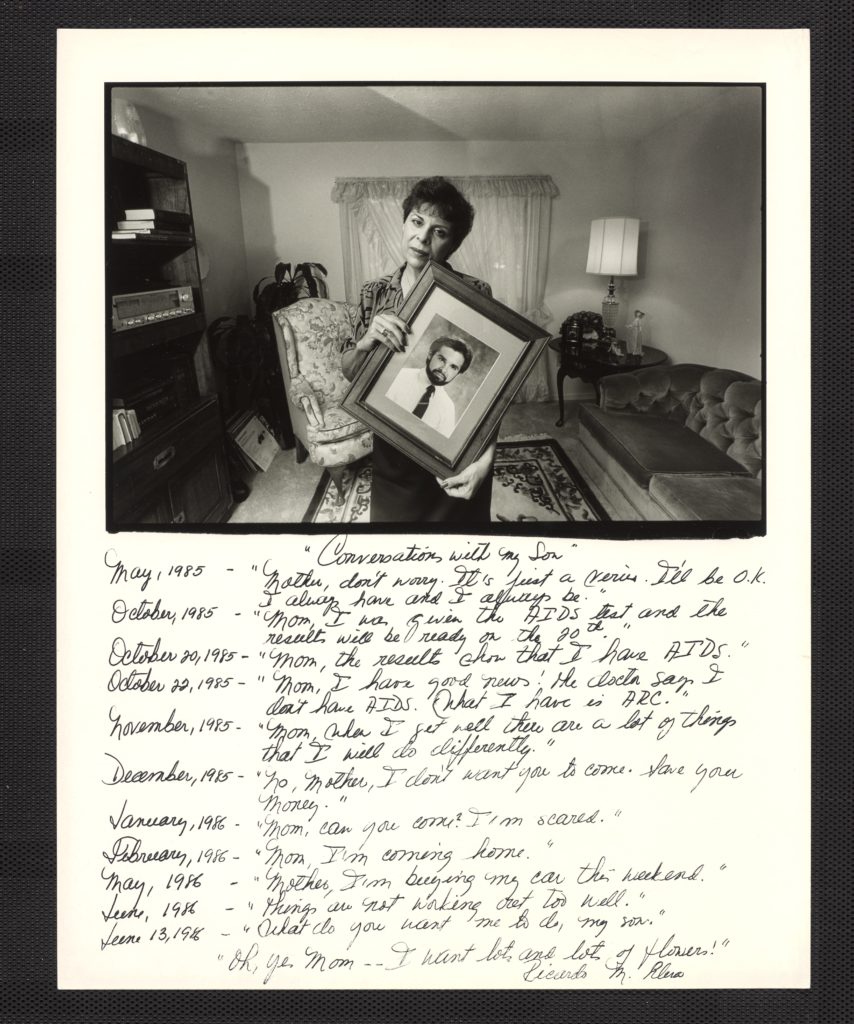 "Conversations with my Son"
May, 1985 - "Mother, don't worry. It's just a verius. I'll be O.K.
I alway have and I allways be."
October, 1985 - "Mom, I was given the AIDS test and the
results will be ready on the 20th."
October 20, 1985 - "Mom, the results show that I have AIDS."
October 22, 1985 - "Mom, I have good news! the doctor says I
don't have AIDS. What I have is ARC."
November, 1985 - "Mom, when I get well there are a lot of things
that I will do differently."
December, 1985 - "No, Mother, I don't want you to come. Save your
Money."
January, 1986 - "Mom, can you come? I'm scared."
February, 1986 - "Mom, I'm coming home."
May, 1986 - "Mother, I'm buying my car this weekend."
June, 1986 - "Things are not working out too well."
June 13, 1986 - "What do you want me to do, my son."
"Oh, yes Mom -- I want lots and lots of flowers!"
Ricardo M.